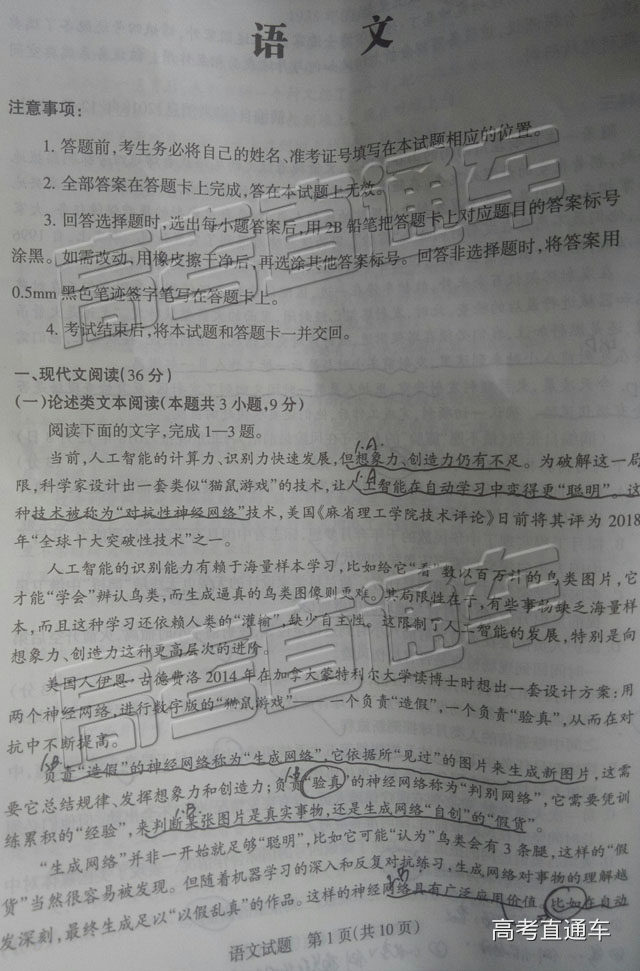 语 文
注意事项：
1. 答题前，考生务必将自己的姓名、准考证号填写在本试题相应的位置。
2. 全部答案在答题卡上完成，答在本试题上无效。
3. 回答选择题时，选出每小题答案后，用2B铅笔把答题卡上对应题目的答案标号
涂黑。如需改动，用橡皮擦干净后，再选涂其他答案标号。回答非选择题时，将答案用
0.5mm黑色笔迹签字笔写在答题卡上。
4. 考试结束后，将本试题和答题卡一并交回。
一、现代文阅读（36分）
（一）论述类文本阅读（本题共3小题，9分）
阅读下面的文字，完成1—3题。
1.A.
当前，人工智能的计算力、识别力快速发展，但想象力、创造力仍有不足。为破解这一局
限，科学家设计出一套类似“猫鼠游戏”的技术，让人工智能在自动学习中变得更“聪明”。这
种技术被称为“对抗性神经网络”技术，美国《麻省理工学院技术评论》日前将其评为2018
年“全球十大突破性技术”之一。
人工智能的识别能力有赖于海量样本学习，比如给它“看”数以百万计的鸟类图片，它
才能“学会”辨认鸟类，而生成逼真的鸟类图像则更难。其局限性在于，有些事物缺乏海量样
本，而且这种学习还依赖人类的“灌输”，缺少自主性。这限制了人工智能的发展，特别是向
想象力、创造力这种更高层次的进阶。
美国人伊恩·古德费洛2014年在加拿大蒙特利尔大学读博士时想出一套设计方案：用
两个神经网络，进行数字版的“猫鼠游戏”——一个负责“造假”，一个负责“验真”，从而在对
抗中不断提高。
负责“造假”的神经网络称为“生成网络”，它依据所“见过”的图片来生成新图片，这需
要它总结规律、发挥想象力和创造力；负责“验真”的神经网络称为“判别网络”，它需要凭训
练累积的“经验”，来判断某张图片是真实事物，还是生成网络“自创”的“假货”。
“生成网络”并非一开始就足够“聪明”，比如它可能“认为”鸟类会有3条腿，这样的“假
货”当然很容易被发现。但随着机器学习的深入和反复对抗练习，生成网络对事物的理解越
发深刻，最终生成足以“以假乱真”的作品。这样的神经网络具有广泛应用价值，比如在自动
语文试题 第1页（共10页）
高考直通车
高考直通车
高考直通车